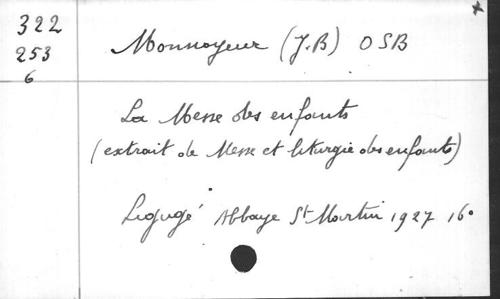 322
253
6
Monnoyeur (J.B) OSB
La Messe des enfants
(extrait de Messe et liturgie des enfants)
Ligugé Abbaye St Martin 1927 16°